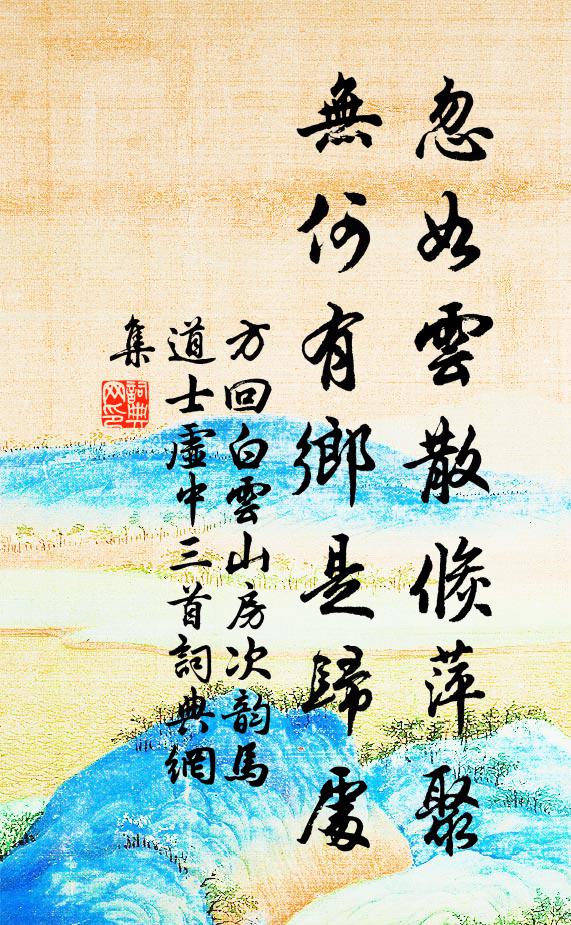 忽如雲散倐萍聚
無何有鄉是歸處
方回白雲山房次韵馬
道士虛中三首詞典網
集
詞典
网印